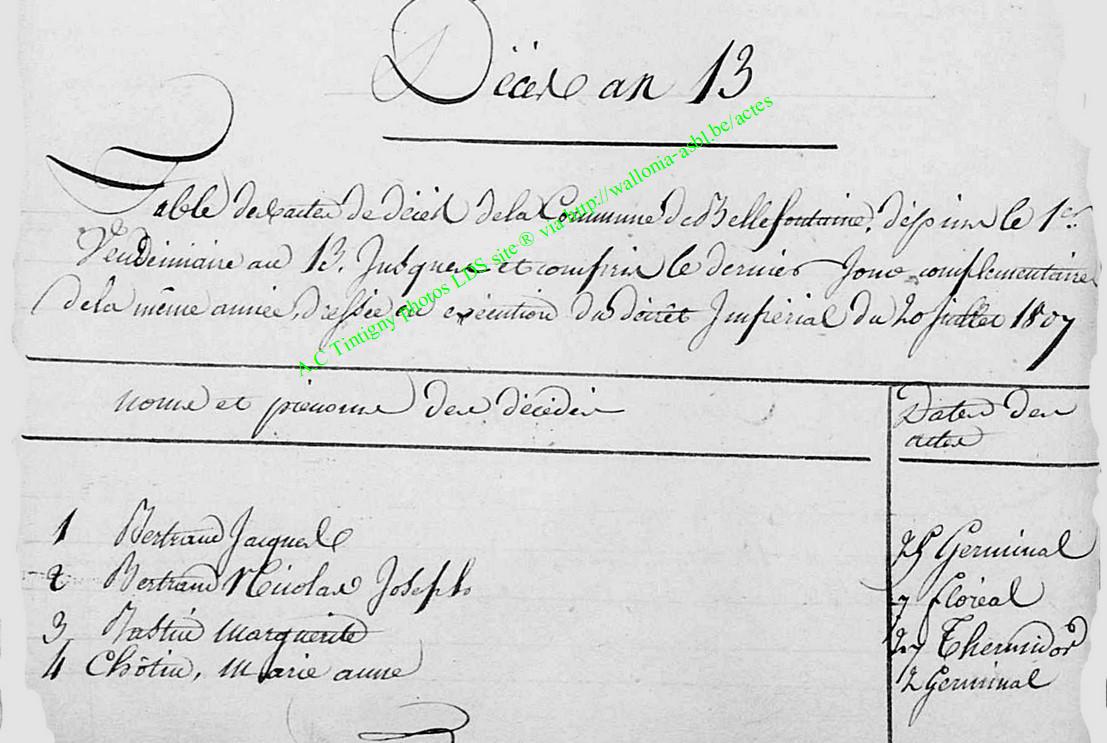 Décès an 13
Table des actes de décès de la Commune de Bellefontaine, depuis le 1er
Vendémiaire an 13, Jusques et compris le dernier Jour complementaire
de la même année, dressée en exécution du décret Impérial du 20 juillet 1807
noms et prénoms des décédés
Dates des
actes
1 Bertrand Jacques 25 Germinal
2 Bertrand Nicolas Joseph 7 floréal
3 Bastin Marguerite 27 Thermidor
4 Chôtin, Marie anne 2 Germinal
A.C Tintigny photos LDS site® via http://wallonia-asbl.be/actes